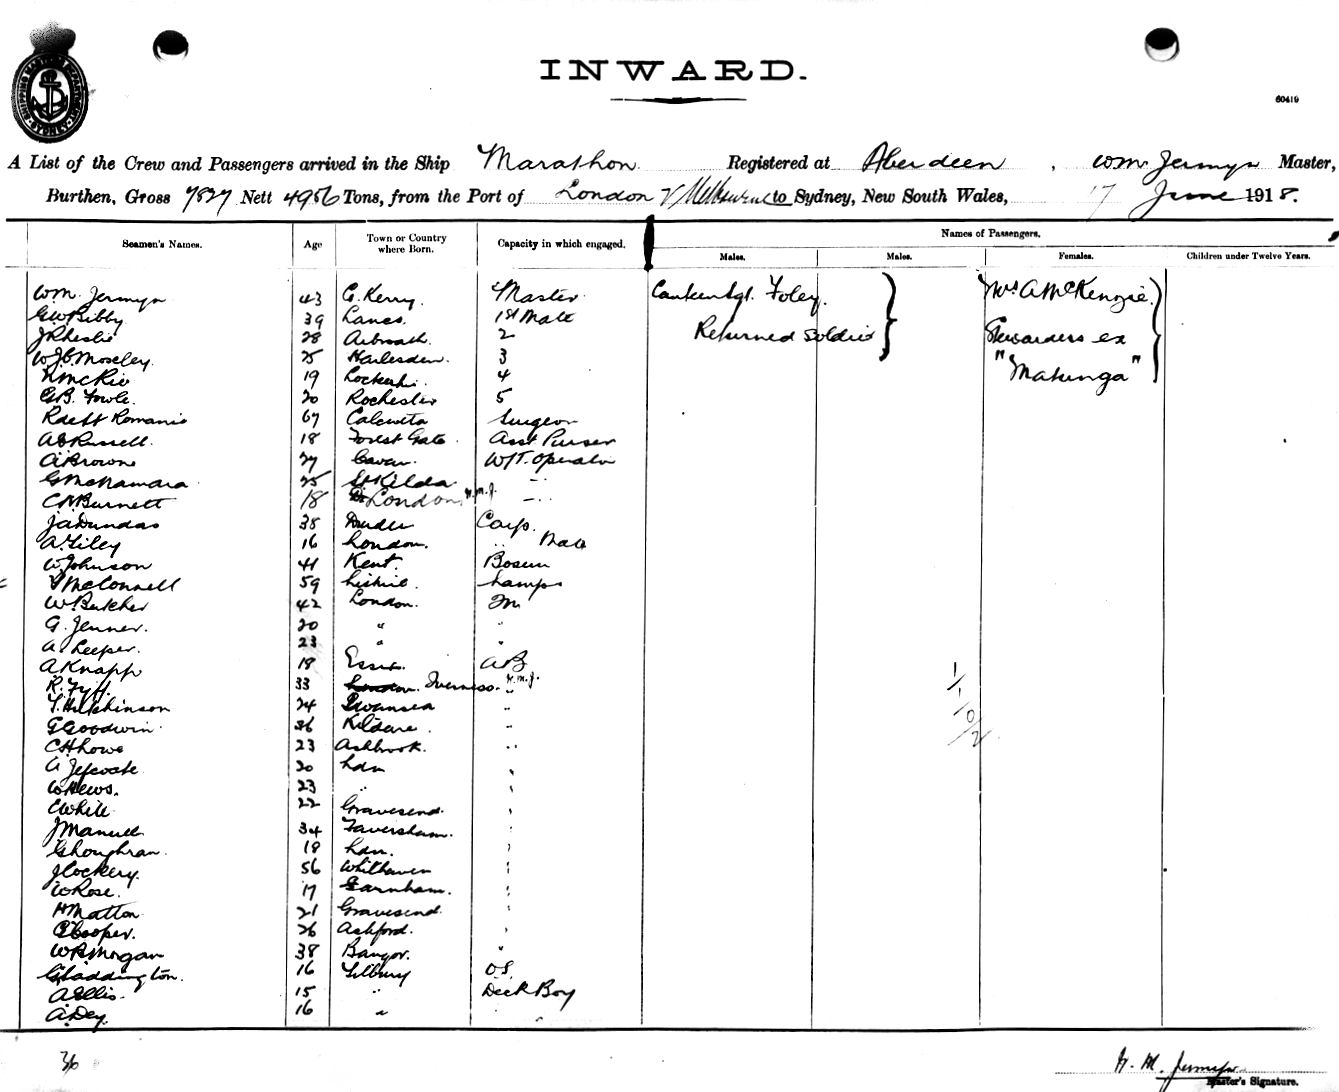 SHIPPING MASTER'S DEPARTMENT SYDNEY
INWARD.
60419
A List of the Crew and Passengers arrived in the Ship Marathon Registered at Aberdeen, Wm Jermyn Master,
Burthen, Gross 7827 Nett 4956 Tons, from the Port of London & Melbourne to Sydney, New South Wales, 17 June 1918.
Seamen's Names. Age Town or Country where Born. Capacity in which engaged. Names of Passengers.
Males. Males. Females. Children under Twelve Years.
Wm. Jermyn 43 C. Kerry. Master Sgt. Foley. Mrs A McKenzie.
GW Bibby 39 Lancs. 1st Mate
J R Leslie 28 Arbroath. 2 Returned Soldier Stewardess ex
W J C Moseley. 25 Harlesden. 3 "Makunga"
19 4
G B. Fowle. 20 Rochester 5
Romanis 67 Calcutta Surgeon
A Russell. 18 Forest Gate Asst Purser
A Browne 27 Cavan. W/T. Operator
G McNamara 25 St Kilda "
C Burnett 18 London. W.M.J. "
J A Dundas 38 Dundee Carp.
A. Tiley 16 London. " Mate
W Johnson 41 Kent. Bosun
McConnell 59 Lamps
W Butcher 42 London. M
G. Jenner. 20 " "
A Leeper. 23 " "
A Knapp 18 Essex. AB
R. Fyff. 33 London. Inverness. W.M.J. "
T. Hutchinson 24 Swansea "
G Goodwin 36 Kildare. "
C H Lowe 23 Ashbrook. "
A 20 Ldn "
W Hews. 23 " "
C White 22 Gravesend "
J Manuel 34 Faversham. "
G Loughran. 18 Ldn. "
J Cockery. 56 Whithaven "
W Rose. 17 Farnham. "
H Matton 21 Gravesend. "
Cooper. 26 Ashford. "
W R Morgan 38 Bangor. "
G Laddington. 16 Tilbury O.S.
A Ellis. 15 " Deck Boy
A. Dey. 16 " "
1/-/0/2
36
W. M. Jermyn
Master's Signature.